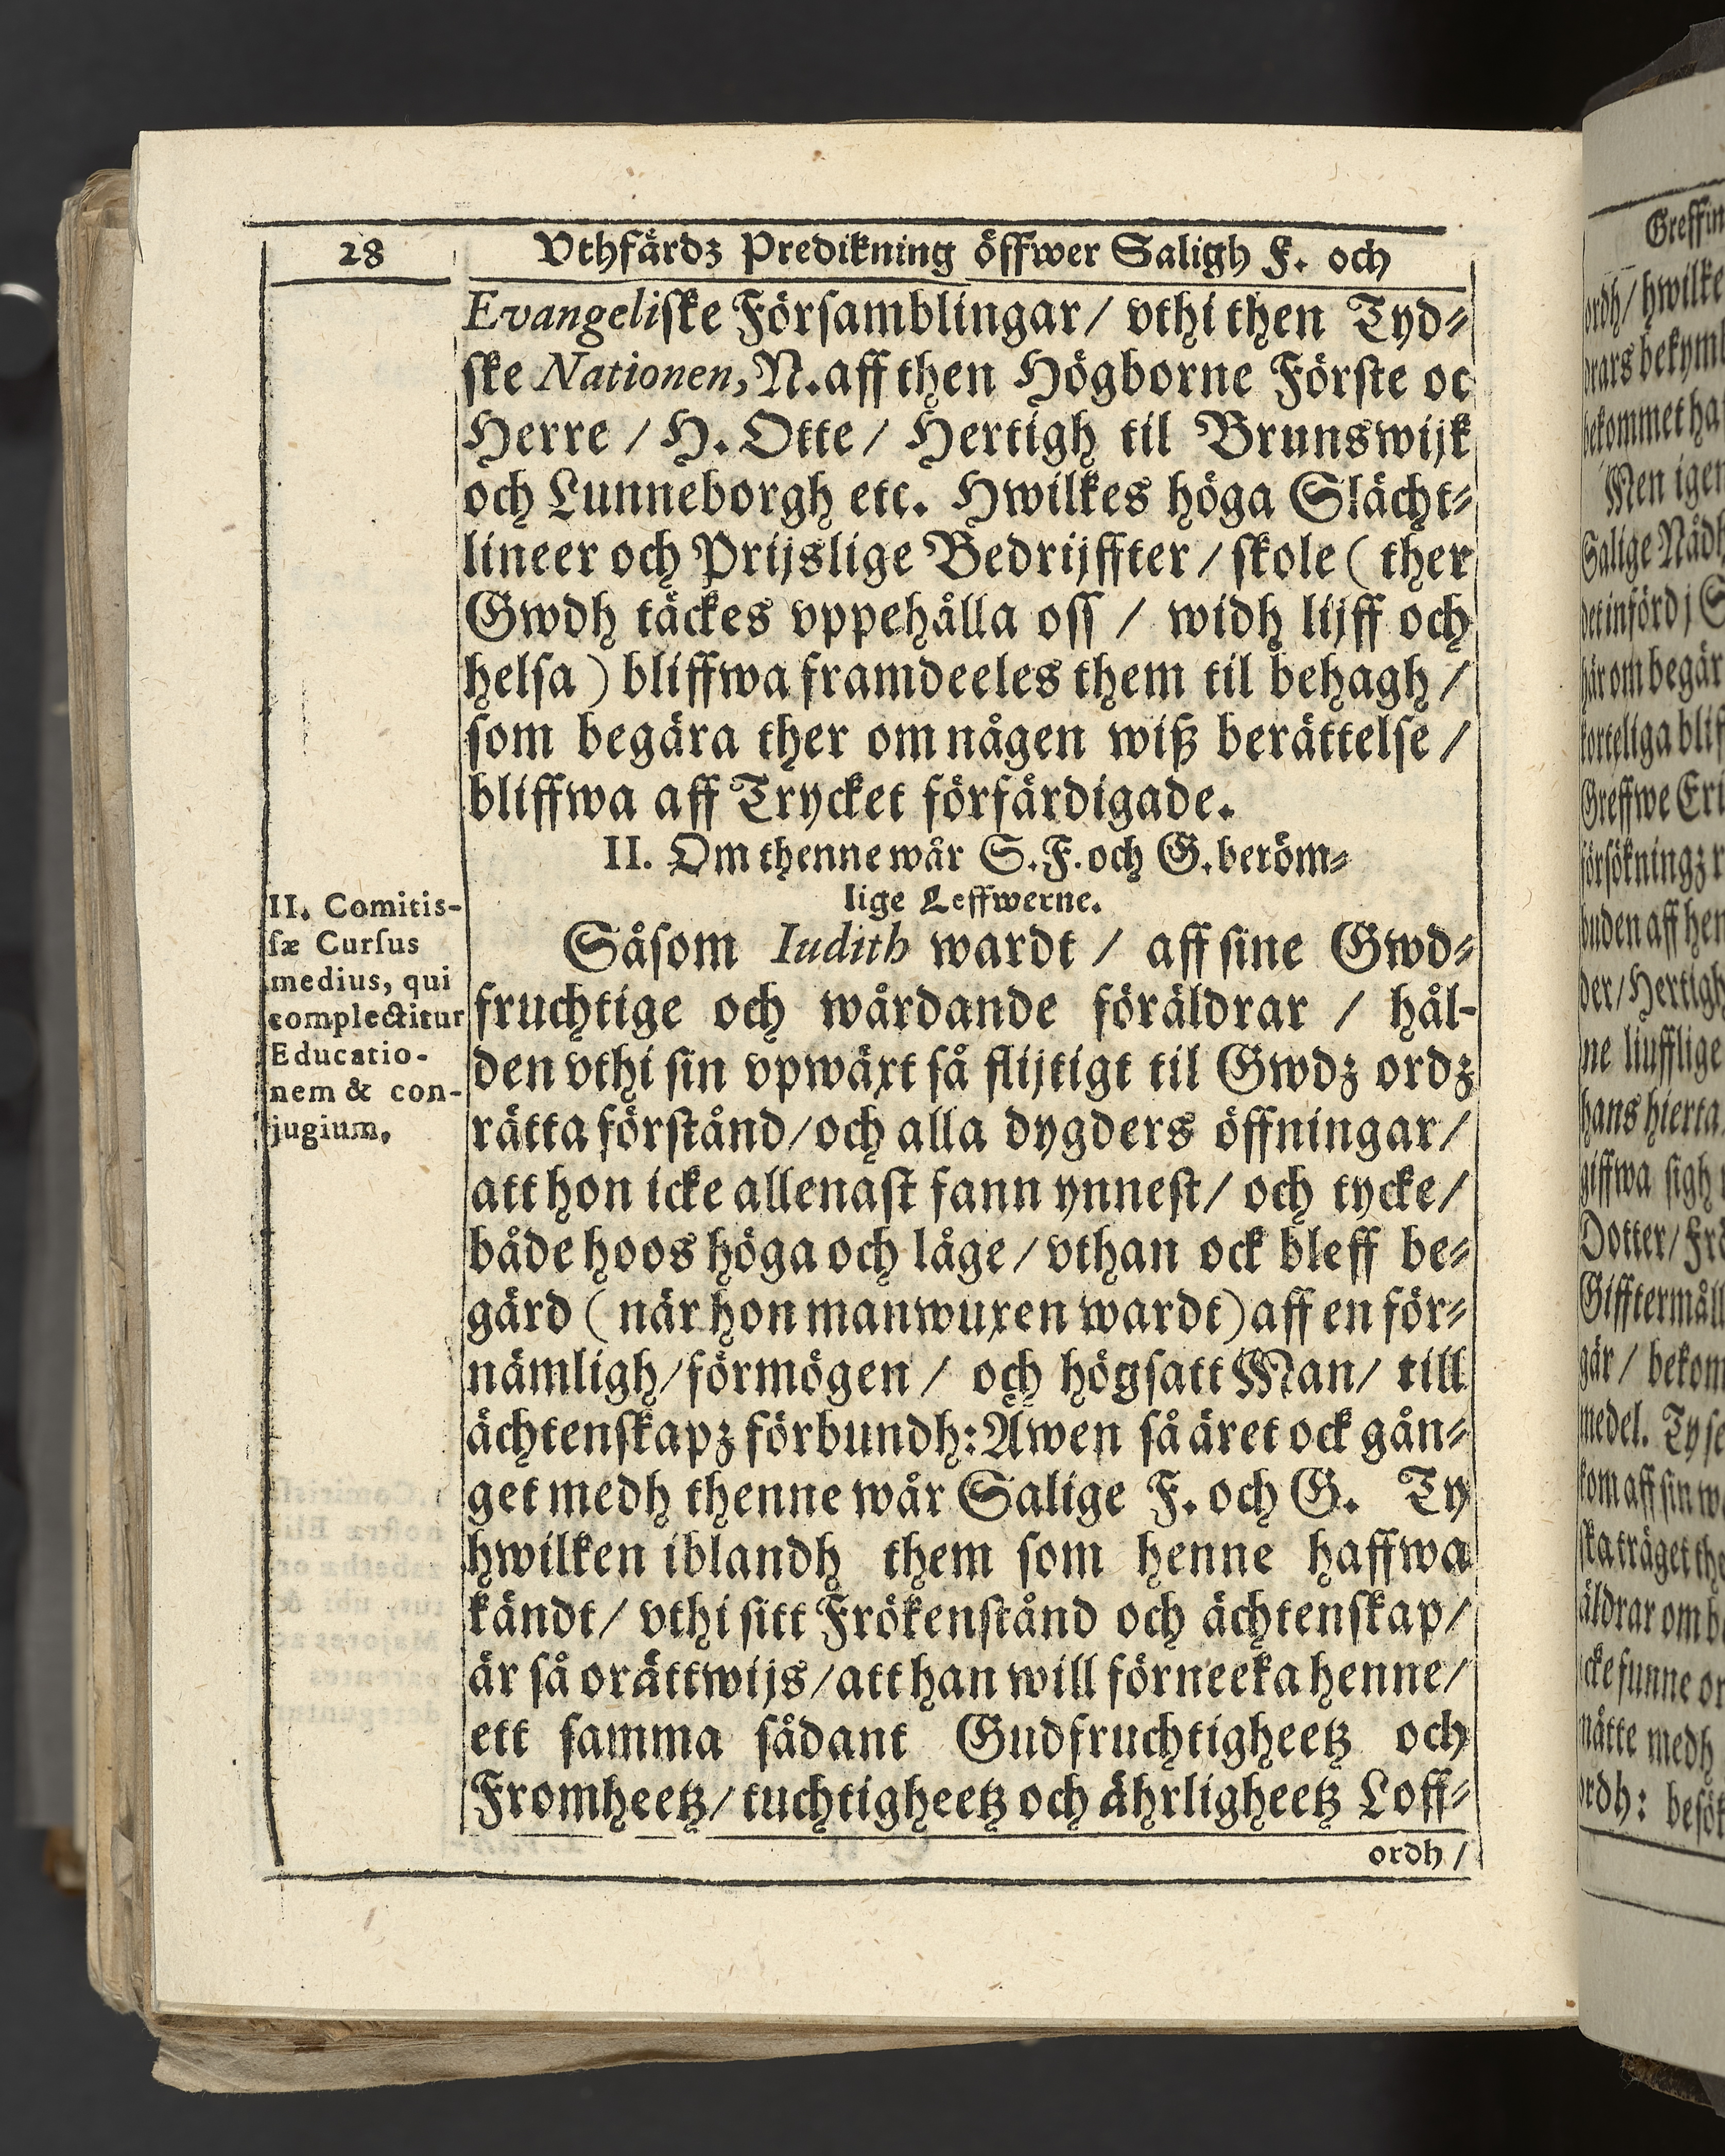 28
Vthfärdz Predikning öffwer Saligh F. och
Evangeliſke Förſamblingar/ vthi then Tyd⸗
ſke Nationen, N. aff then Högborne Förſte oc
Herre / H. Otte / Hertigh til Brunswijk
och Lunneborgh etc. Hwilkes höga Slächt⸗
lineer och Prijslige Bedrijffter / ſkole ( ther
Gwdh täckes vppehålla oſſ / widh lijff och
helſa ) bliffwa framdeeles them til behagh /
ſom begära ther om någen wiß berättelſe /
bliffwa aff Trycket förfärdigade.
II. Om thenne wår S. F. och G. beröm⸗
lige Leffwerne.
Såſom Iudith wardt / aff ſine Gwd⸗
fruchtige och wårdande föräldrar / hål-
den vthi ſin vpwäxt ſå flijtigt til Gwdz ordz
rätta förſtånd/och alla dygders öffningar/
att hon icke allenaſt fann ynneſt/ och tycke/
både hoos höga och låge / vthan ock bleff be⸗
gärd ( när hon manwuxen wardt) aff en för⸗
nämligh/förmögen / och högſatt Man/ till
ächtenſkapz förbundh: Äwen ſå äret ock gån⸗
get medh thenne wår Salige F. och G. Ty
hwilken iblandh them ſom henne haffwa
kändt/ vthi ſitt Frökenſtånd och ächtenſkap/
är ſå orättwijs/att han will förneeka henne/
ett ſamma ſådant Gudfruchtigheetz och
Fromheetz/ tuchtigheetz och ährligheetz Loff⸗
ordh /
II. Comitis-
ſæ Curſus
medius, qui
complectitur
Educatio-
nem & con-
jugium.
Greffin
ordh/ hwilke
bekommet ha
Men igen
Salige Nådh
här om begär
korteliga blif
Greffwe Eri
buden aff hen
der/Hertigh
ne liufflige
hans hierta
giffwa ſigh
Dotter/ Frö
Gifftermåll
gär / bekom
medel. Ty ſe
kom aff ſin w
äldrar om b
icke funne or
nätte medh
ordh: beſök